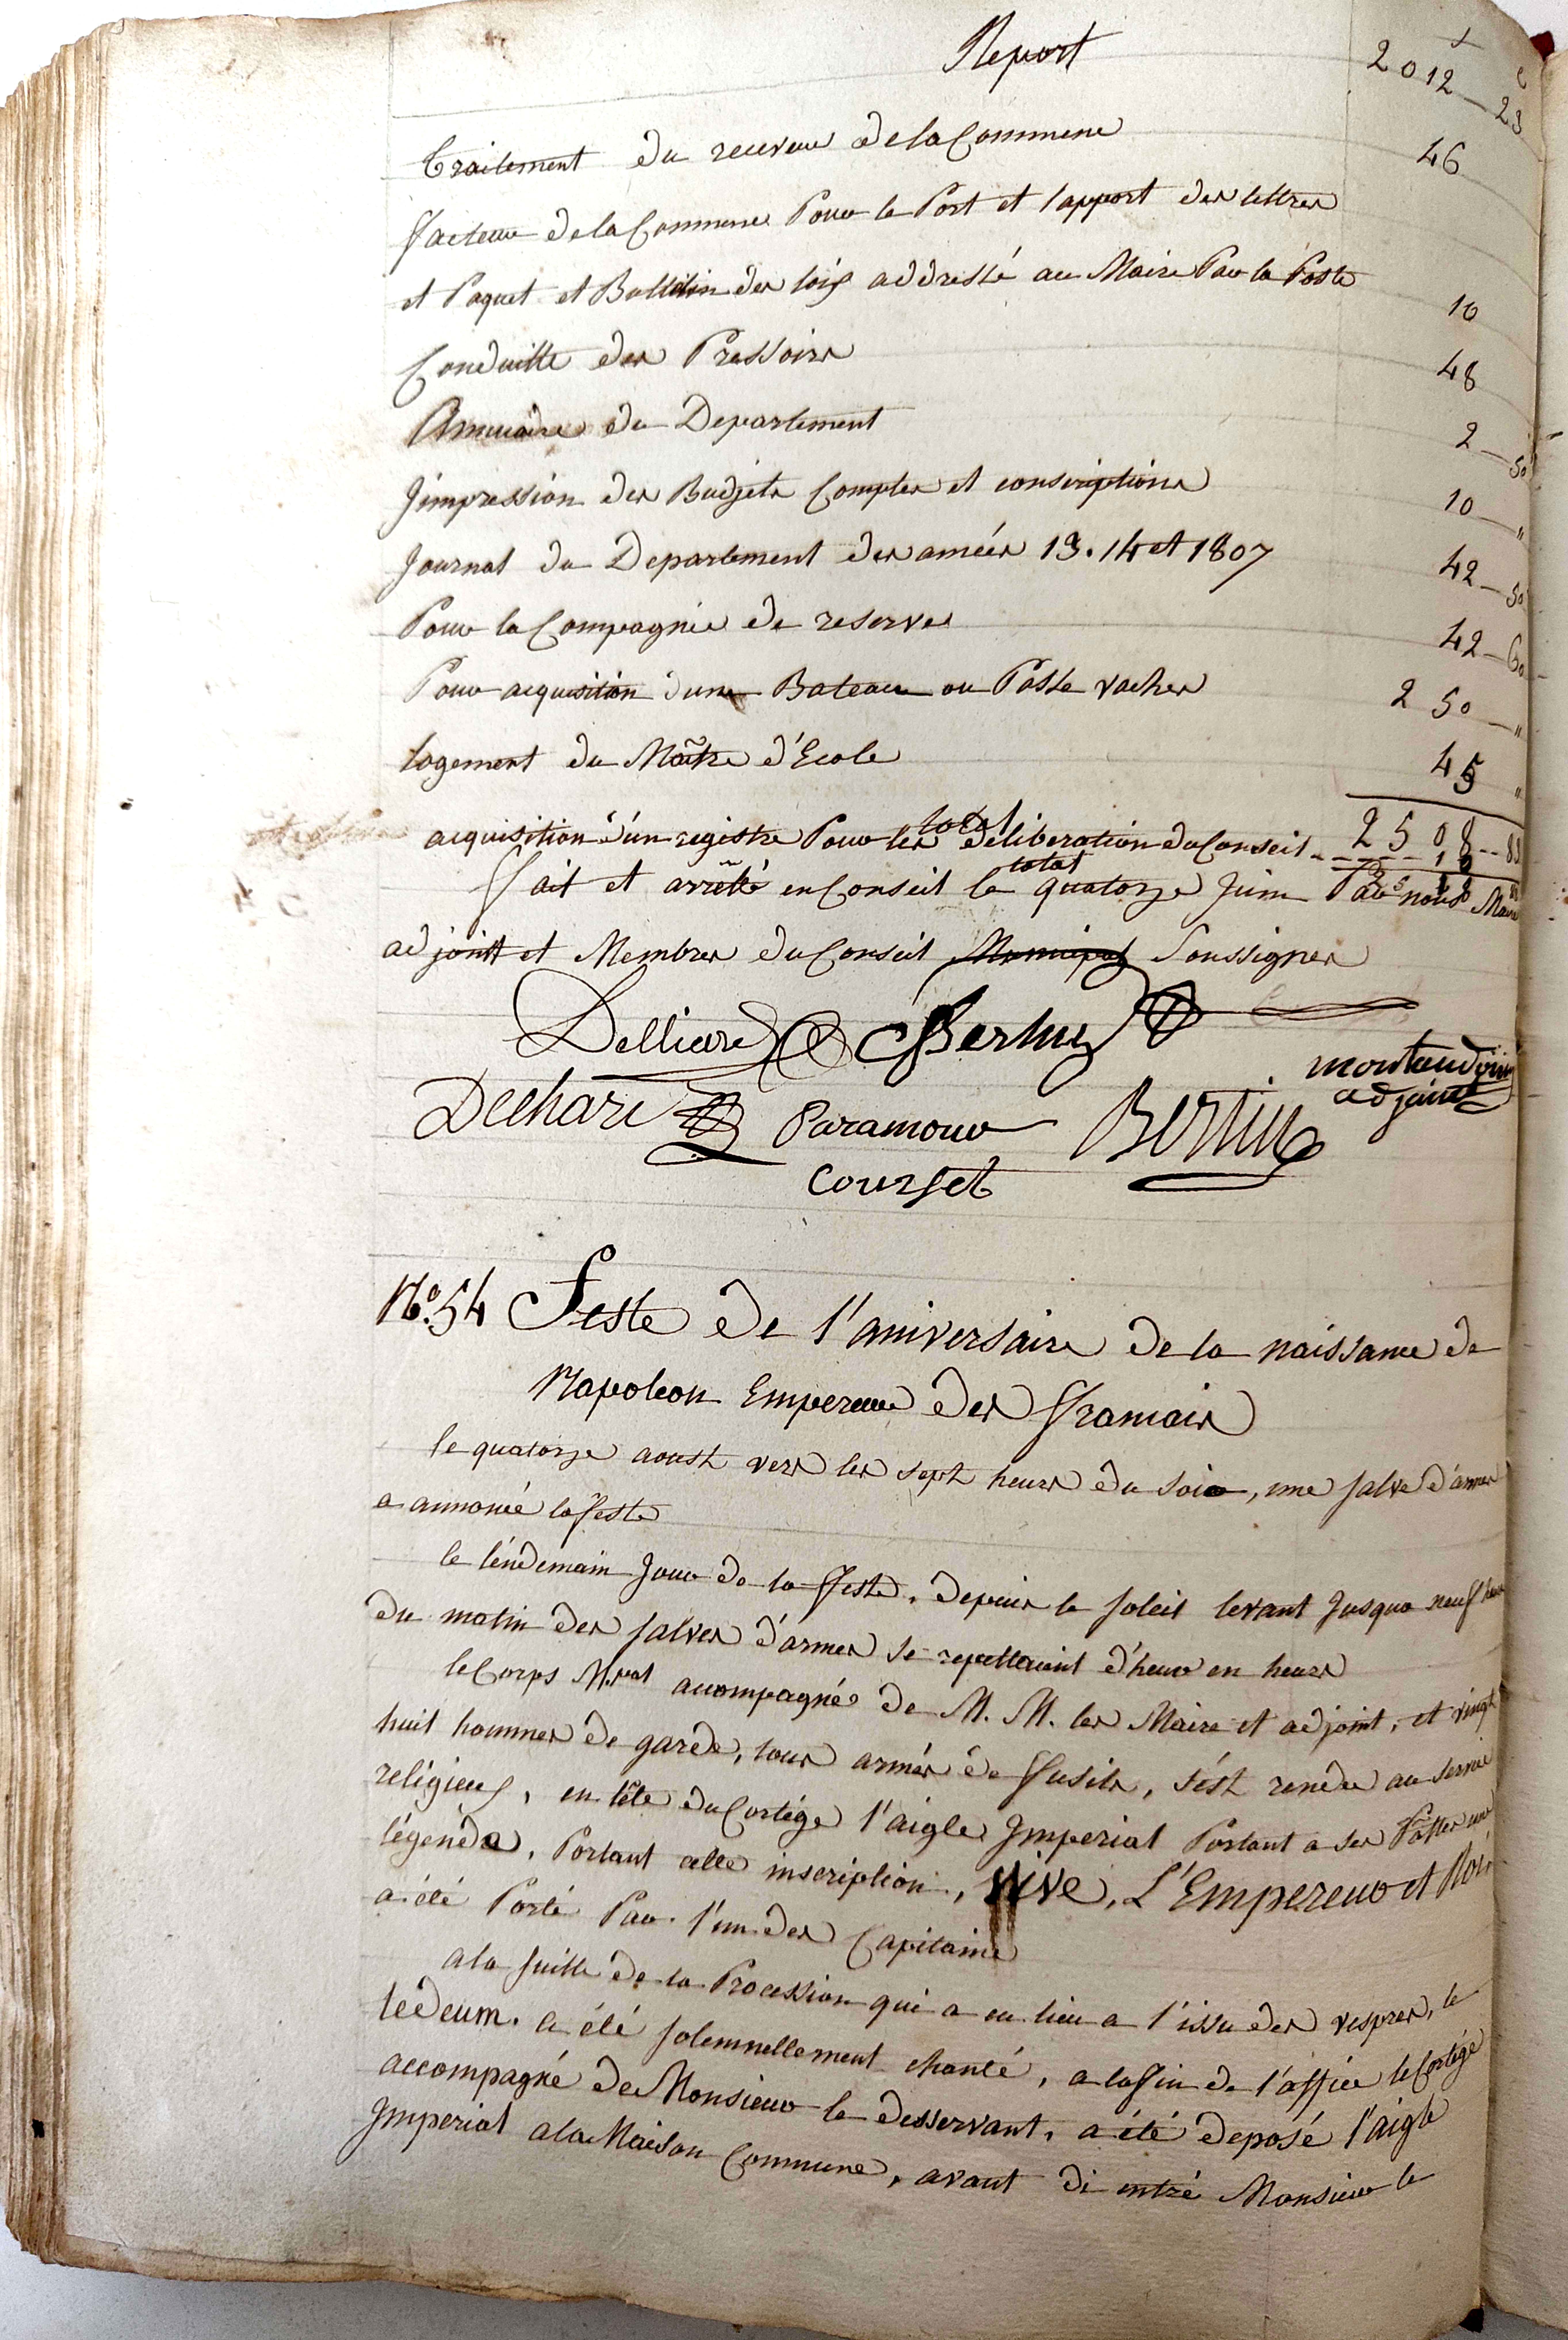 Report 2012 f 23 c
Traitement du receveur de la Commune 46
facteur de la Commune Pour le Port et l'apport des lettres
et Paquet et Bulletin des loix addressé au Maire Par la Poste 10
Conduitte des Pressoirs 48
Annuaire du Departement 2 50
Jimpression des Budjets Comptes et conscriptions 10 "
Journal du Departement des années 13. 14 et 1807 42 50
Pour la Compagnie de reserve 42 60
Pour acquisition d'une Bateau ou Passe vaches 250 "
logement du Maître d'Ecole 45 "
total 2508 83
acquisition d'un registre Pour les déliberation du Conseil
total
fait et arrêtté en Conseil le quatorze Juin Par nous Maire
adjoint et Membres du Conseil Municipal Soussignés
Delliere Berlue
montaudouin
adjoint
Dechare Paramour Bertin
Courset
N.° 54 Feste de l'aniversaire de la naissance de
Napoleon Empereur des Francais
le quatorze aoust vers les sept heures du soir, une salve d'armes
a annoncé la feste
le lendemain Jour de la feste, depuis le soleil levant Jusqua neuf heures
du matin des salves d'armes se repettaient d'heur en heure
le Corps M.pal acompagné de M. M. les Maire et adjoint, et vingt
huit hommes de garde, tous armés de fusils, s'est rendu au servic
religieux, en tête du Cortége l'aigle Jmperial Portant a ses Pattes une
légende, Portant cette inscription, Vive, L'Empereur et Roi
a été Porté Par l'un des Capitaine
a la suitte de la Procession qui a eu lieu a l'issu des vespres, le
tedeum. a été solemnellement chanté, a la fin de l'office le Cortége
accompagné de Monsieur le desservant, a été deposé l'aigle
Jmperial a la Maison Commune, avant di entré Monsieur le